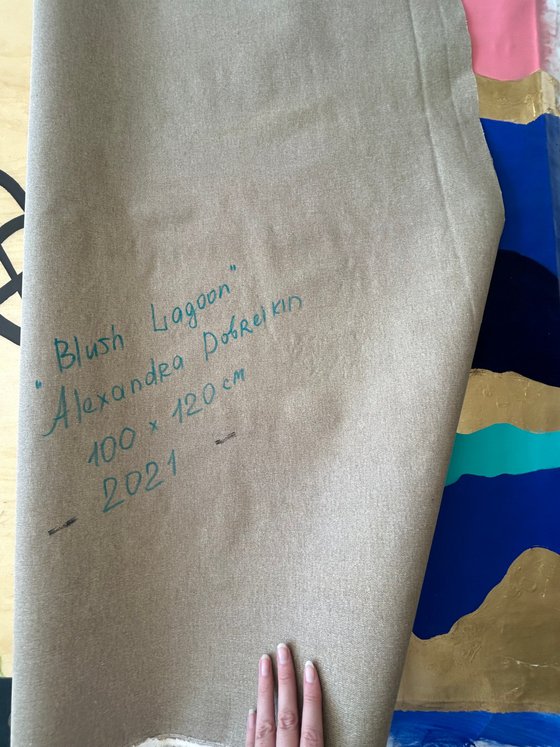 "Blush Lagoon"
Alexandra Dobrelkin
100 x 120 cm
2021